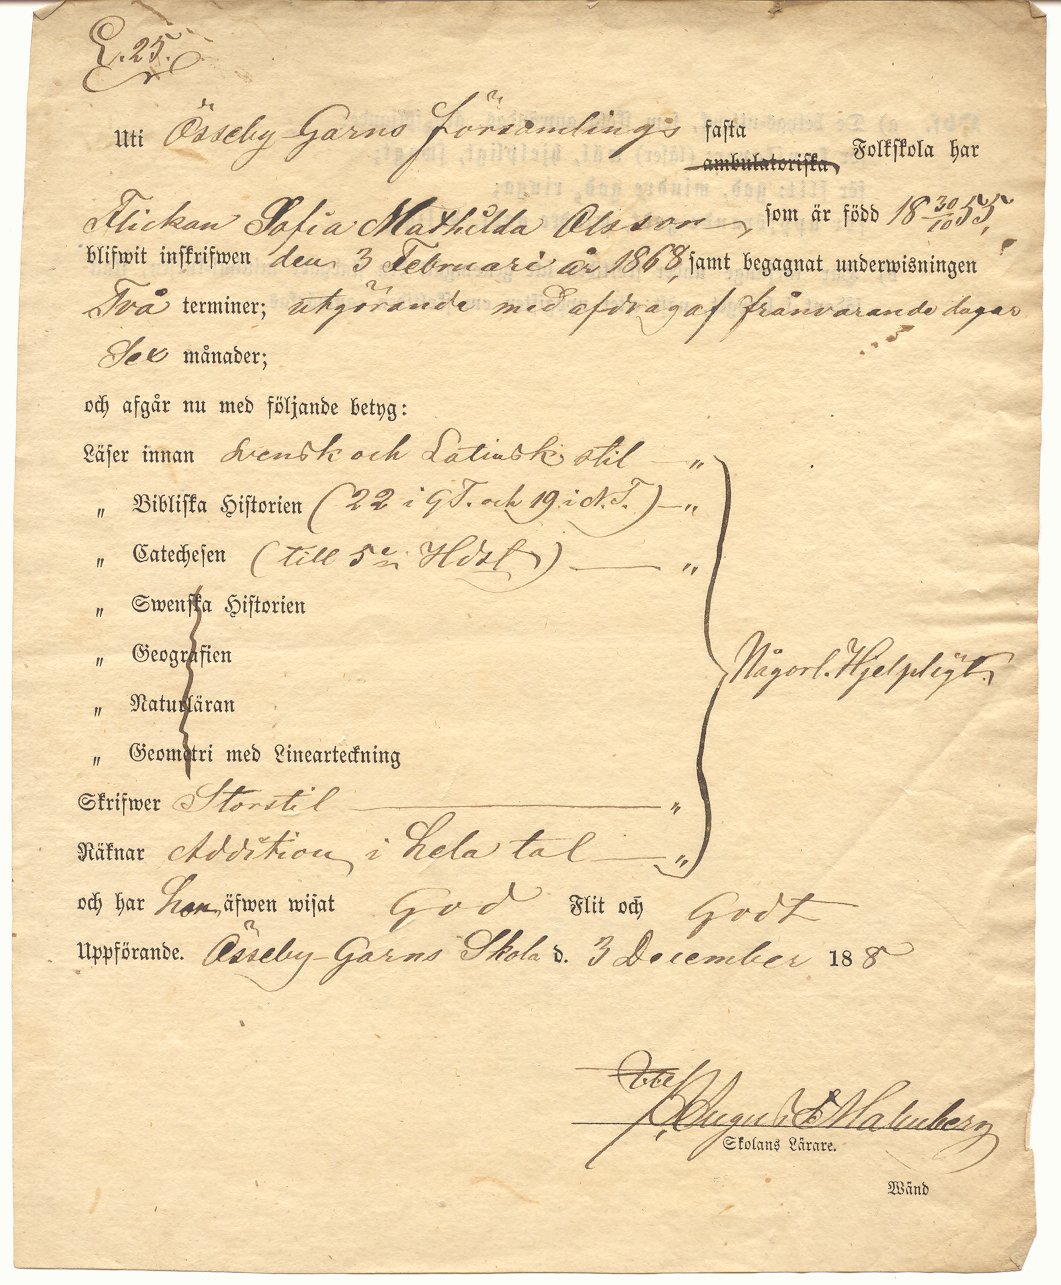 L. 25.
Uti Össeby-Garns Församlings fasta ambulatoriska Folkskola har
Flickan Sofia Mathilda Olsson, som är född 18 30/10 55,
blifwit inskrifwen den 3 Februari år 1868 samt begagnat underwisningen
Två terminer; utgörande med afdrag af frånvarande dagar
Sex månader;
och afgår nu med följande betyg:
Läser innan Svensk och Latinsk stil — "
" Bibliska Historien (22 i G.T. och 19 i N.T.) — "
" Catechesen (till 5e Hdst) — "
" Swenska Historien
" Geografien
Någorl. Hjelpligt.
" Naturläran
" Geometri med Linearteckning
Skrifwer Storstil — "
Räknar Addition i hela tal — "
och har hon äfwen wisat God Flit och Godt
Uppförande. Össeby-Garns Skola d. 3 December 188
August Malmberg
Skolans Lärare.
Wänd